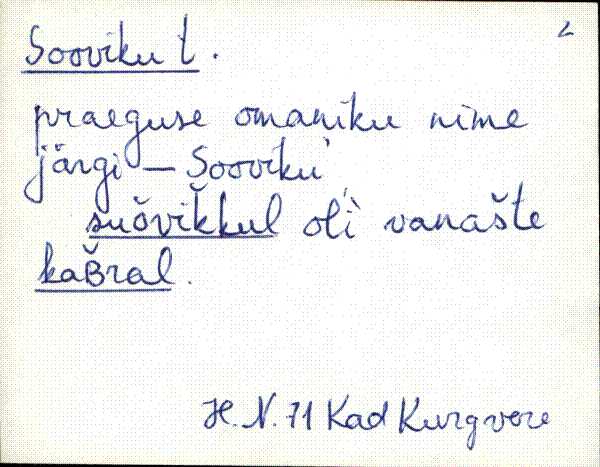 2
Sooviku t.
praeguse omaniku nime
järgi – Sooviku,
suǒvik̆kul olì̬ vanašte
kaʙ̆ral.
H. N. 71 Kad Kurgvere